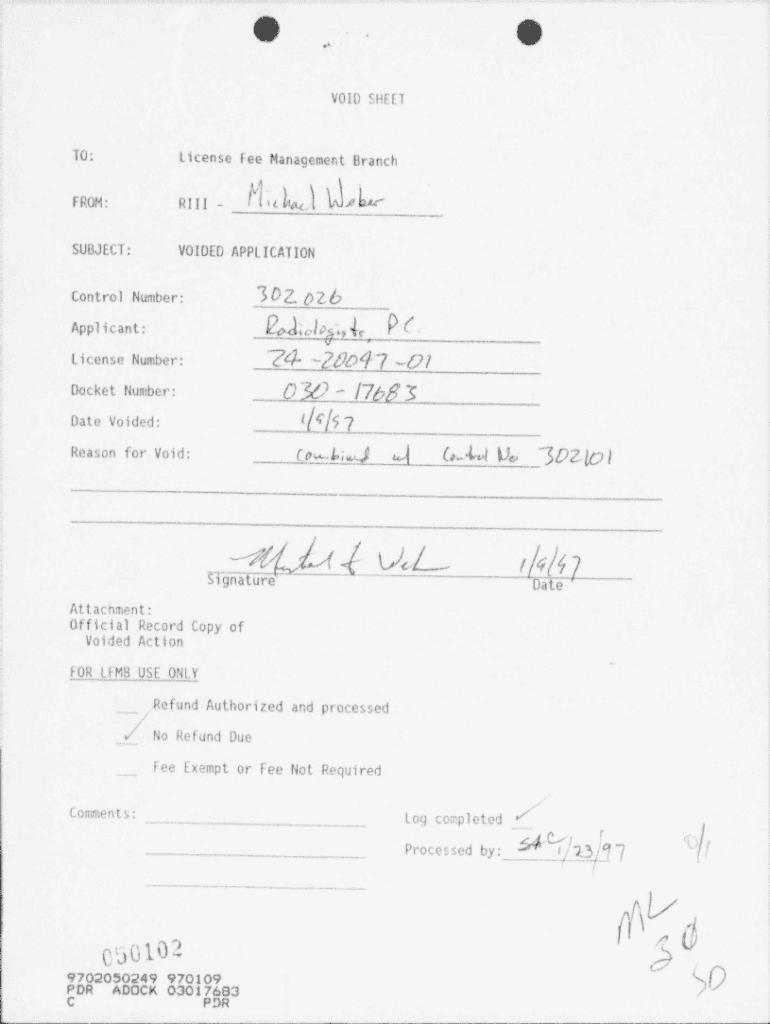 VOID SHEET
TO: License Fee Management Branch
FROM: RIII - Michael Weber
SUBJECT: VOIDED APPLICATION
Control Number: 302026
Applicant: Radiologists, P.C.
License Number: 24-20047-01
Docket Number: 030-17683
Date Voided: 1/9/97
Reason for Void: Combined w/ Control No 302101
1/9/97
Signature Date
Attachment:
Official Record Copy of
Voided Action
FOR LFMB USE ONLY
Refund Authorized and processed
✓ No Refund Due
Fee Exempt or Fee Not Required
Comments:
Log completed ✓
Processed by: SAC 1/23/97
ML
30
050102
9702050249 970109
PDR ADOCK 03017683
C PDR